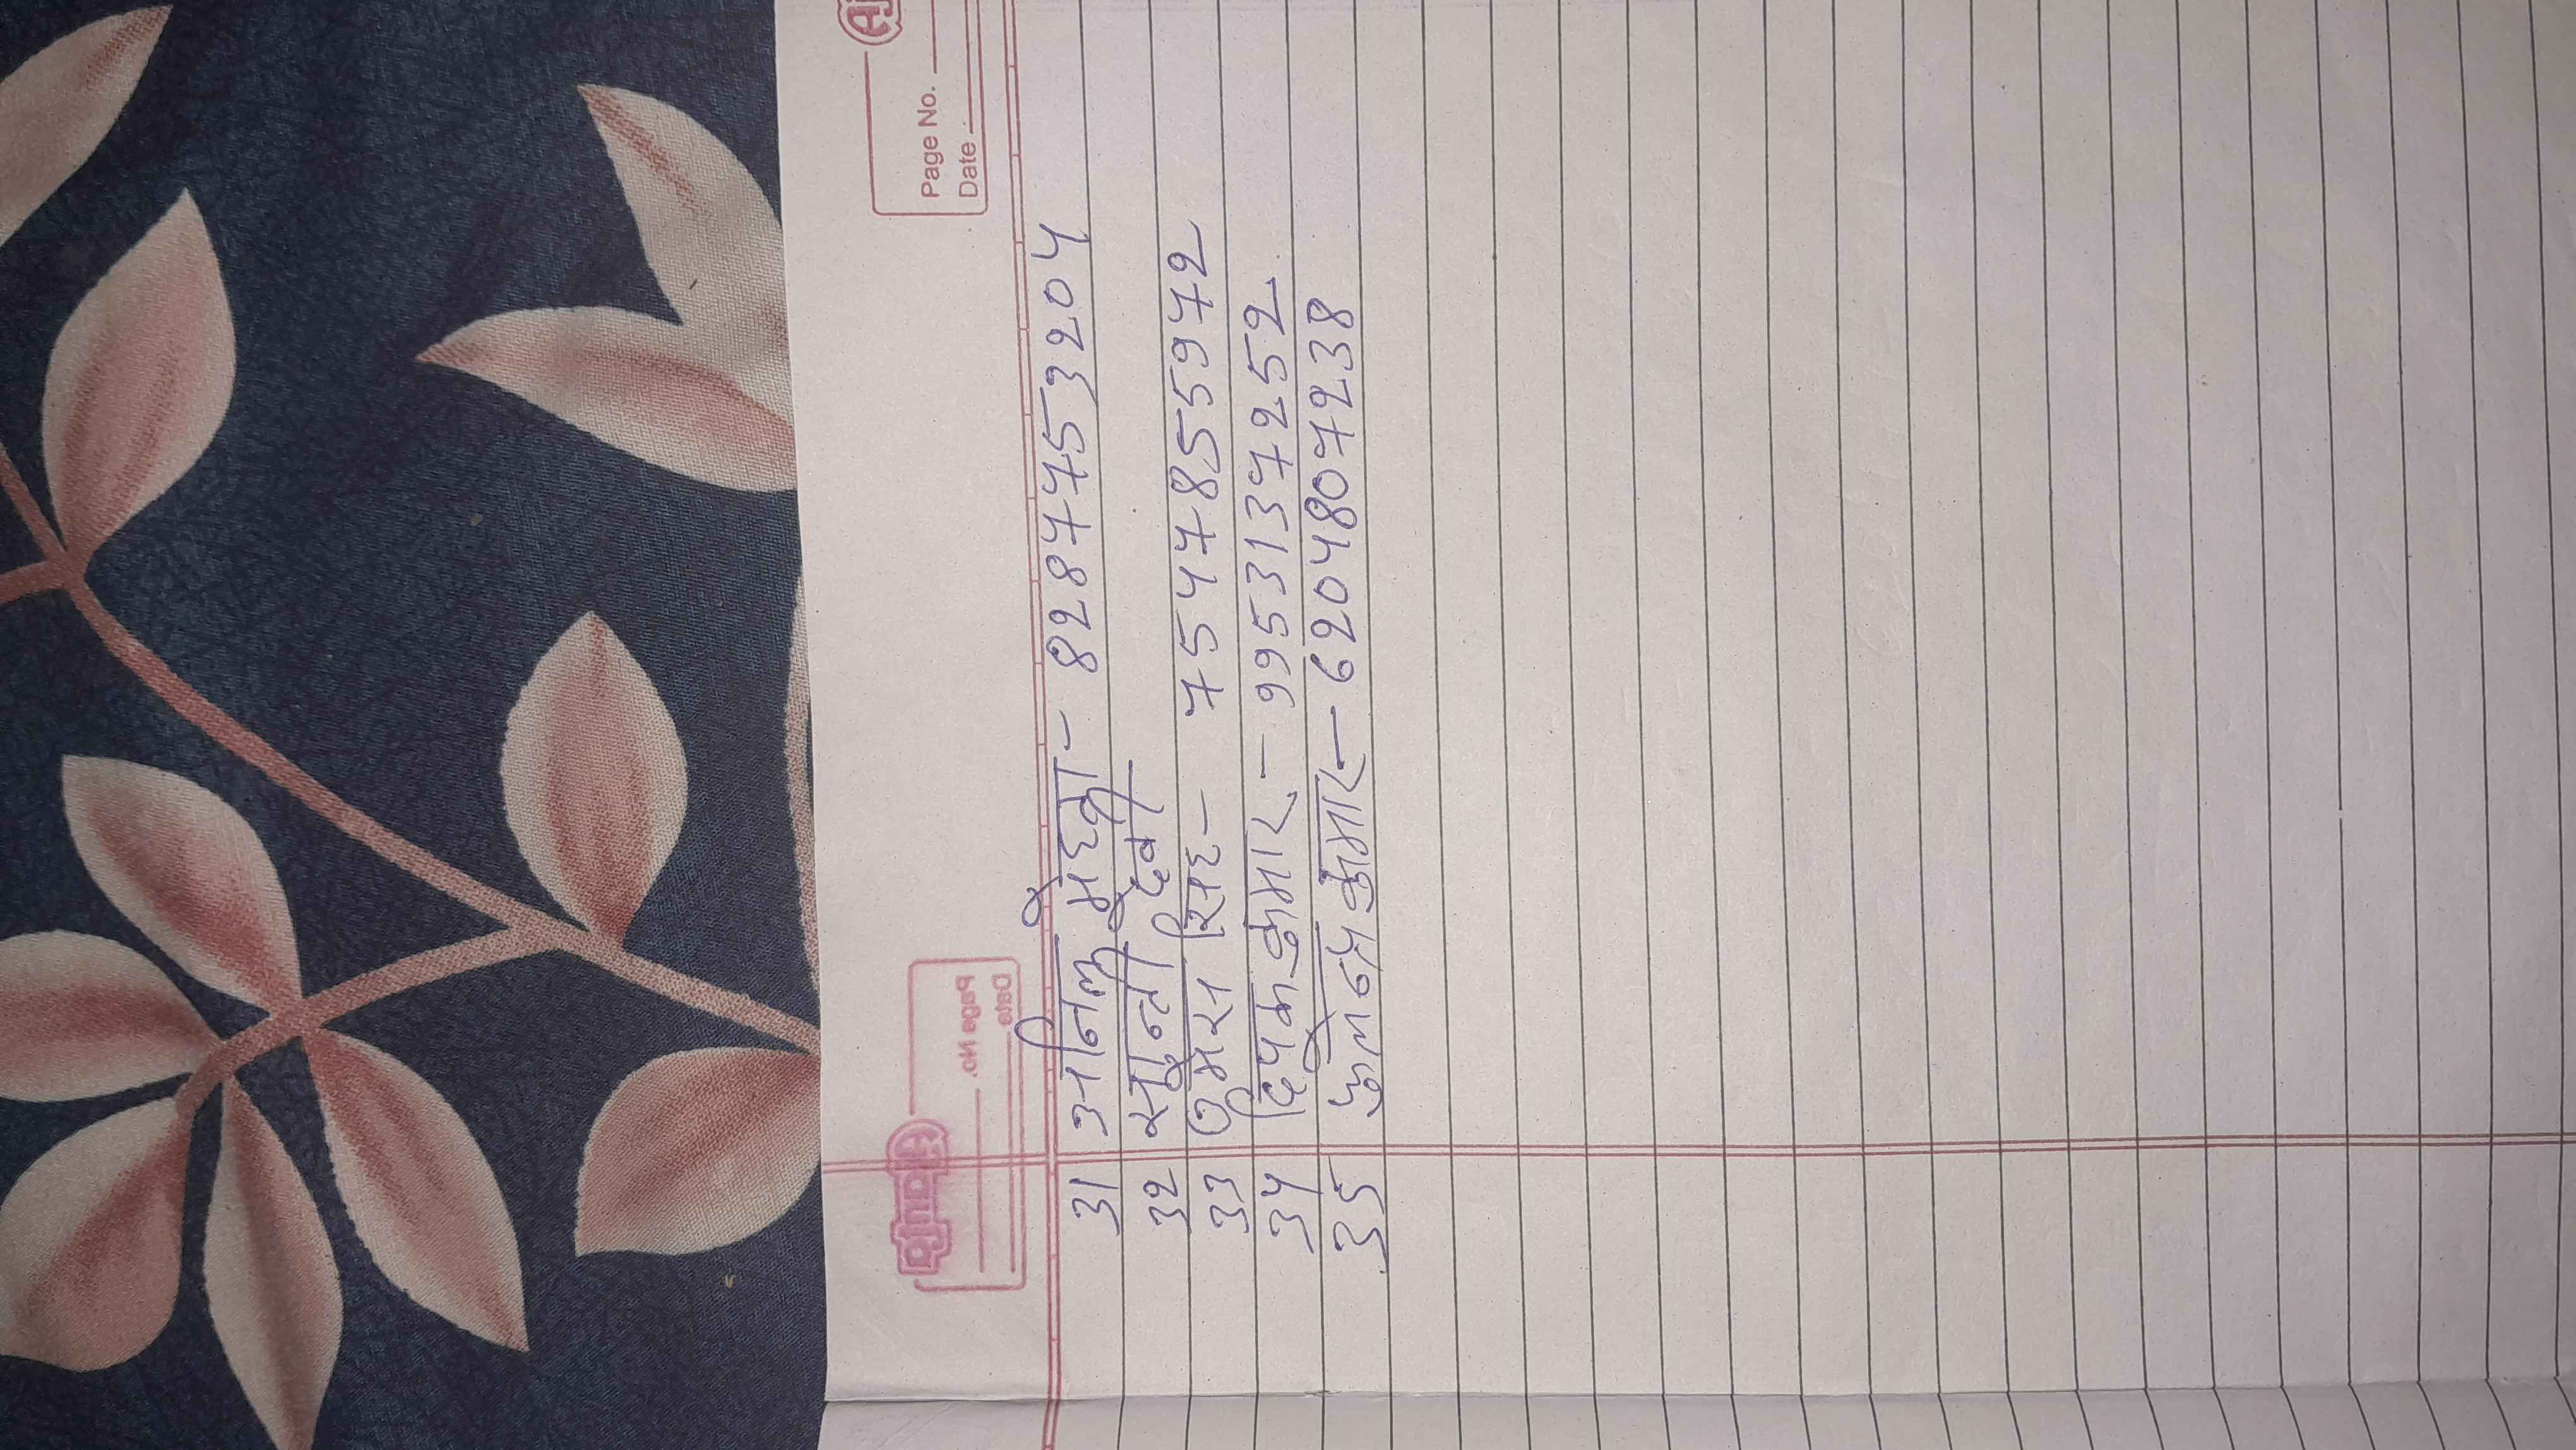 Page No.
Date
31 अनिल मेहता - 8287753204
32 सुनीता देवी
33 उमेश सिंह - 7547855972
34 दिपक कुमार - 9953137252
35 कुमार - 6204807238